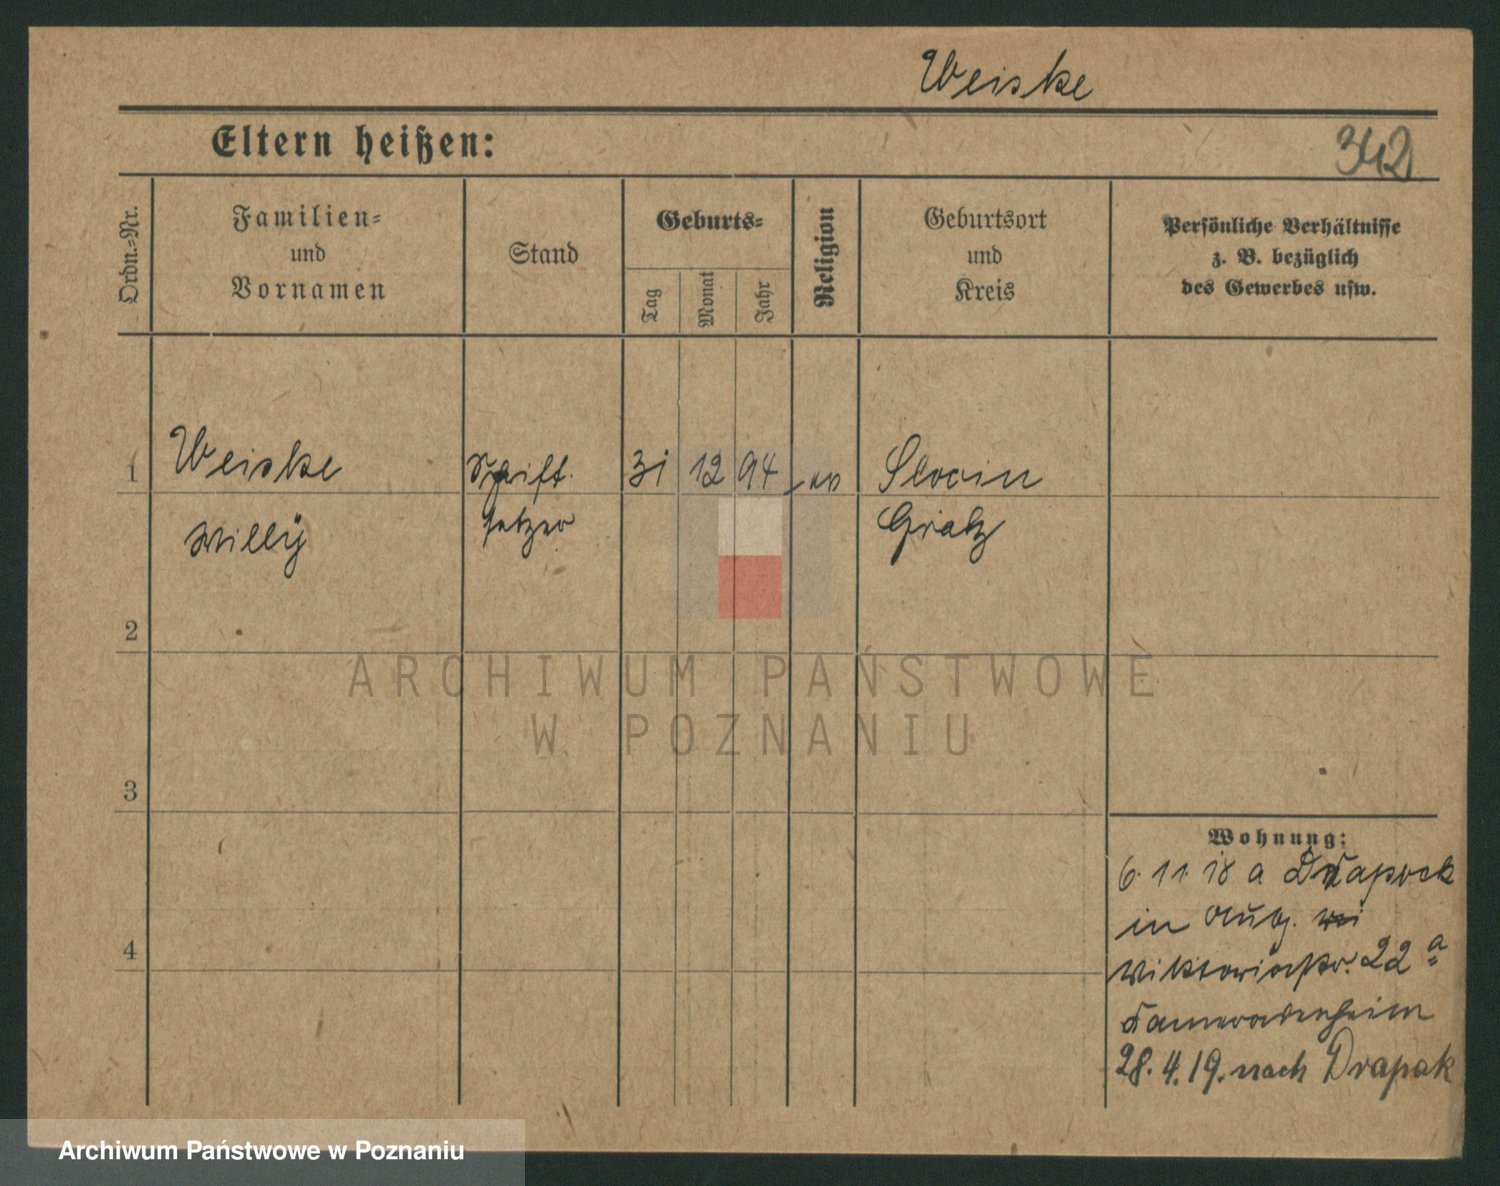 Weiske
Eltern heißen:
342
Ordn.-Nr.
Familien-
und
Vornamen
Stand
Geburts-
Tag
Monat
Jahr
Religion
Geburtsort
und
Kreis
Persönliche Verhältnisse
z. B. bezüglich
des Gewerbes usw.
1 Weiske Schrift. 31 12 94 ev Slocin
Willÿ setzer Grätz
2
ARCHIWUM PAŃSTWOWE
W POZNANIU
3
Wohnung:
6. 11 18 a Drapock
in
4
Viktoriastr. 22 a
28. 4. 19. nach Drapak
Archiwum Państwowe w Poznaniu